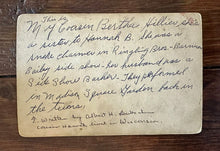 This is
My Cousin Berthie Hillier she's
a sister to Hannah B. She was a
snake charmer in Ringling Bros-Barnum
Bailey side show - her husband was a
Side Show Barker. They performed
in Madison Square Garden back in
the
written by Albert H.
Cousin Hannah lived in Wisconsin.